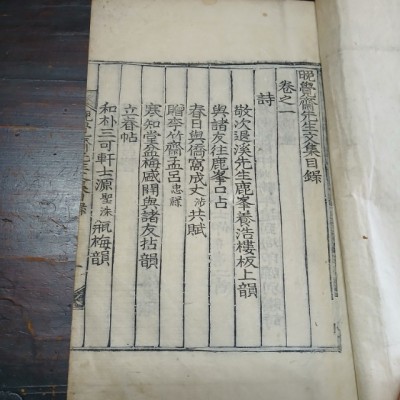 晩覺齋先生文集目錄
卷之一
詩
敬次退溪先生鹿峯養浩樓板上韻
與諸友往鹿峯口占
春日與僑窩成丈 共賦
贈李竹齋孟呂忠祿
寒知堂盆梅盛開與諸友拈韻
立春帖
和朴三可軒士源聖洙瓶梅韻